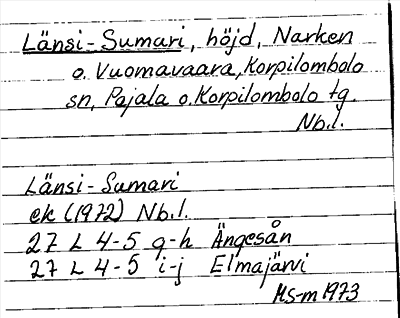 Länsi-Sumari, höjd, Narken
o. Vuomavaara, Korpilombolo
sn, Pajala o. Korpilombolo tg.
Nb.l.
Länsi-Sumari
ek (1972) Nb.l.
27 L 4-5 g-h Ängesån
27 L 4-5 i-j Elmajärvi
MS-m 1973